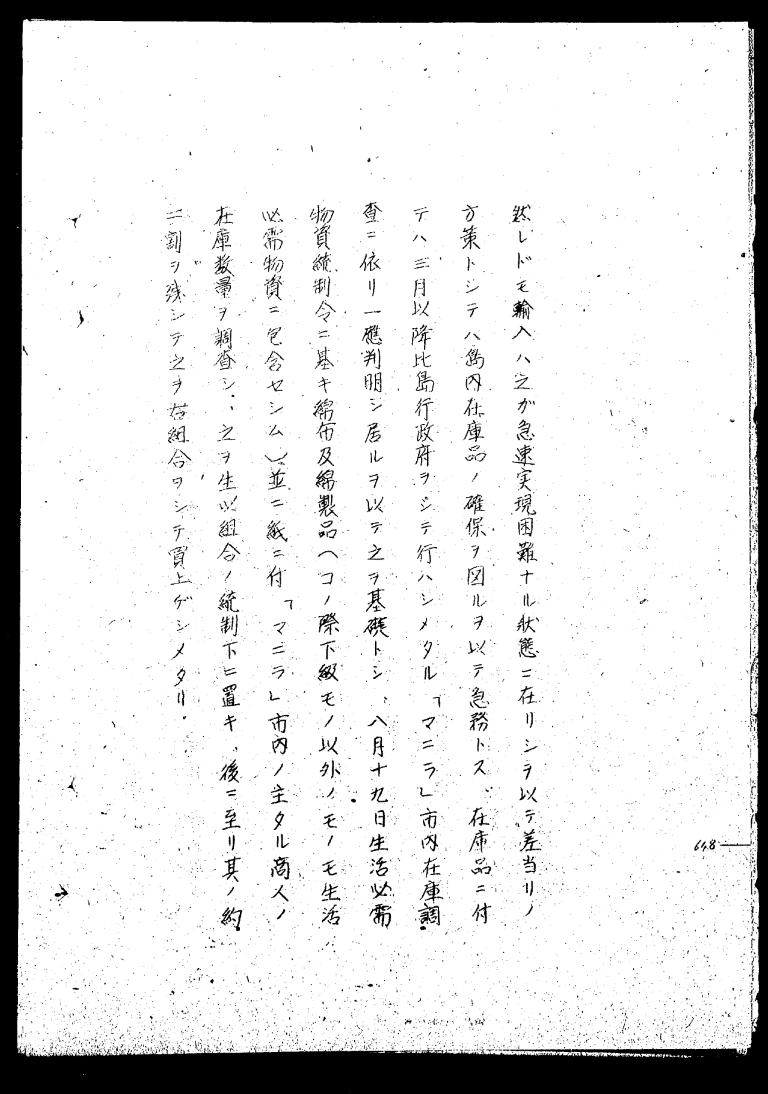 然レドモ輸入ハ之ガ急速実現困難ナル状態ニ在リシヲ以テ差当リノ
方策トシテハ島内在庫品ノ確保ヲ図ルヲ以テ急務トス、在庫品ニ付
テハ三月以降比島行政府ヲシテ行ハシメタル「マニラ」市内在庫調
査ニ依リ一應判明シ居ルヲ以テ之ヲ基礎トシ、八月十九日生活必需
物資統制令ニ基キ綿布及綿製品(コノ際下級モノ以外ノモノモ生活
必需物資ニ包含セシム)並ニ紙ニ付「マニラ」市内ノ主タル商人ノ
在庫数量ヲ調査シ、之ヲ生必組合ノ統制下ニ置キ、後ニ至リ其ノ約
二割ヲ残シテ之ヲ組合ヲシテ買上ゲシメタリ.
648